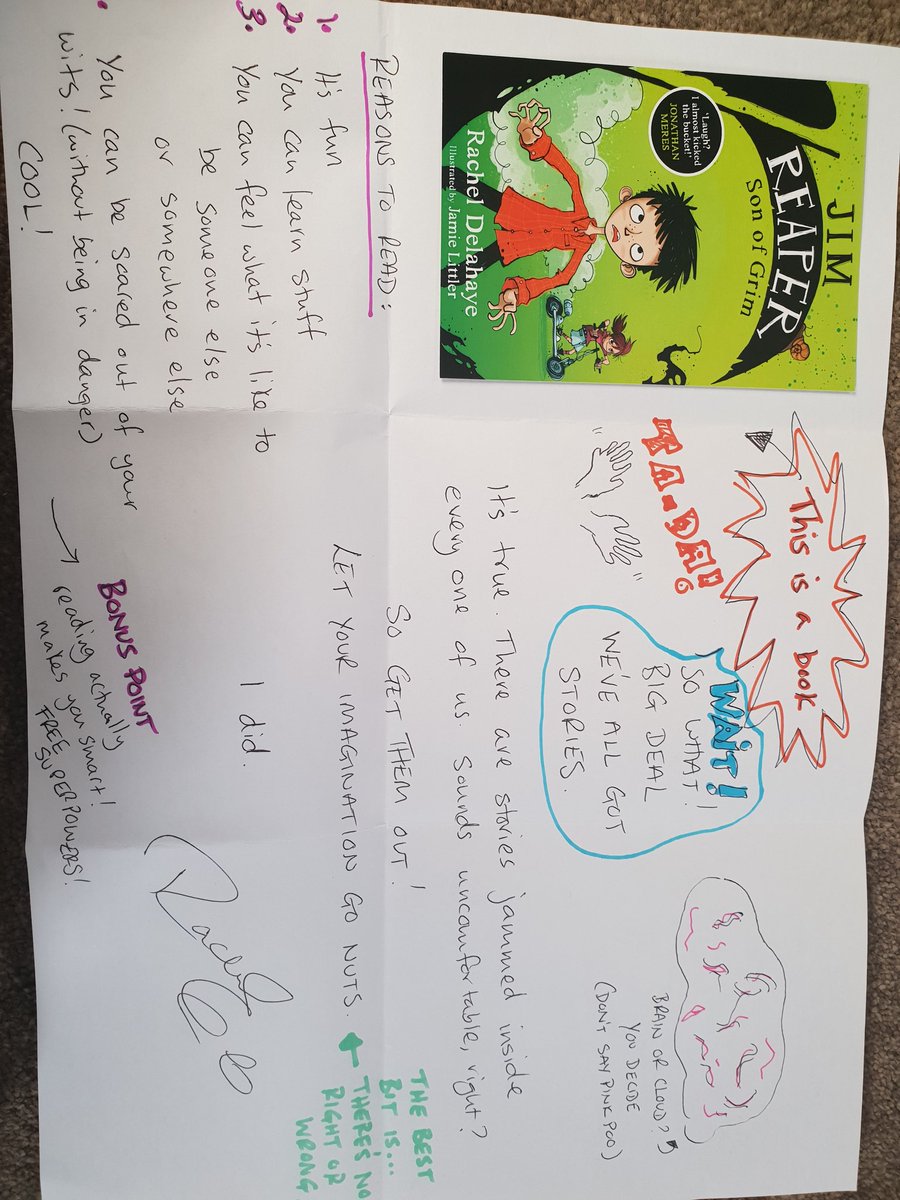 JIM
REAPER
Son of Grim
'Laugh?
I almost kicked
the bucket!'
JONATHAN
MERES
Rachel Delahaye
Illustrated by Jamie Littler
This is a book
TA-DA!
WAIT!
SO WHAT!
BIG DEAL
WE'VE ALL GOT
STORIES.
BRAIN OR CLOUD?
YOU DECIDE
(DON'T SAY PINK POO)
It's true. There are stories jammed inside
every one of us. Sounds uncomfortable, right?
SO GET THEM OUT!
LET YOUR IMAGINATION GO NUTS.
THE BEST
BIT IS...
THERE'S NO
RIGHT OR
WRONG
I did.
REASONS TO READ:
1. It's fun
2. You can learn stuff
3. You can feel what it's like to
be someone else
or somewhere else
• You can be scared out of your
wits! (without being in danger)
COOL!
BONUS POINT
reading actually
makes you smart!
FREE SUPERPOWERS!
Rachel